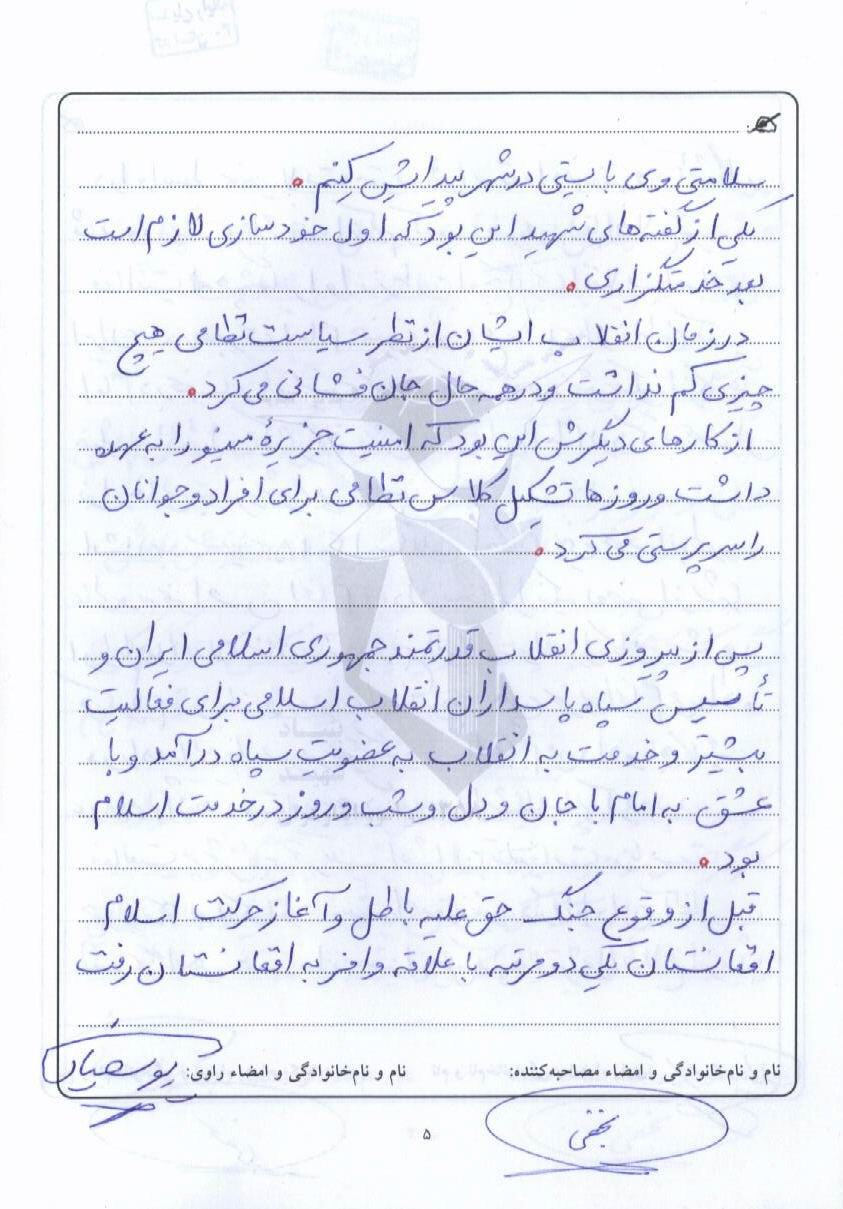 سلامتی وی بایستی در شهر پیدایش کنیم .
یکی از گفته‌های شهید این بود که اول خودسازی لازم است
بعد خدمتگزاری .
در زمان انقلاب ایشان از نظر سیاست نظامی هیچ
چیزی کم نداشت و در همه حال جان فشانی می کرد .
از کارهای دیگرش این بود که امنیت جزیرهٔ مینو را به عهده
داشت و روزها تشکیل کلاس نظامی برای افراد و جوانان
را سرپرستی می کرد .
پس از پیروزی انقلاب قدرتمند جمهوری اسلامی ایران و
تأسیس سپاه پاسداران انقلاب اسلامی برای فعالیت
بیشتر و خدمت به انقلاب به عضویت سپاه درآمد و با
عشق به امام با جان و دل و شب و روز در خدمت اسلام
بود .
قبل از وقوع جنگ حق علیه باطل و آغاز حرکت اسلام
افغانستان یکی دو مرتبه با علاقه وافر به افغانستان رفت
نام و نام‌خانوادگی و امضاء مصاحبه‌کننده: نام و نام‌خانوادگی و امضاء راوی:
نجفی
۵